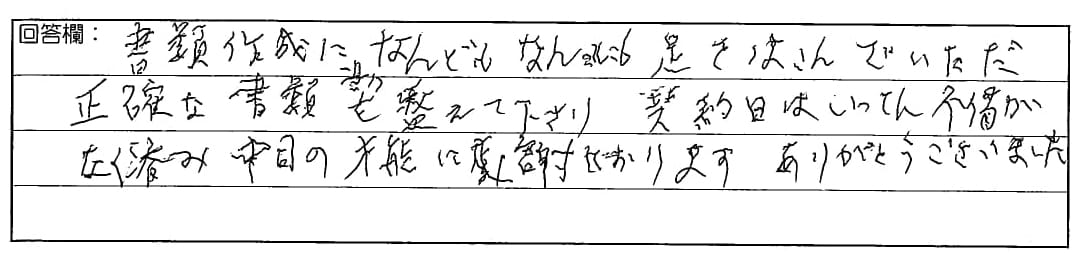 回答欄： 書類作成になんども なんども 足をはこんでいただ
正確な書類を整えて下さり 契約日はいってん不備が
なく済み 本日の状態に感謝しております ありがとうございました